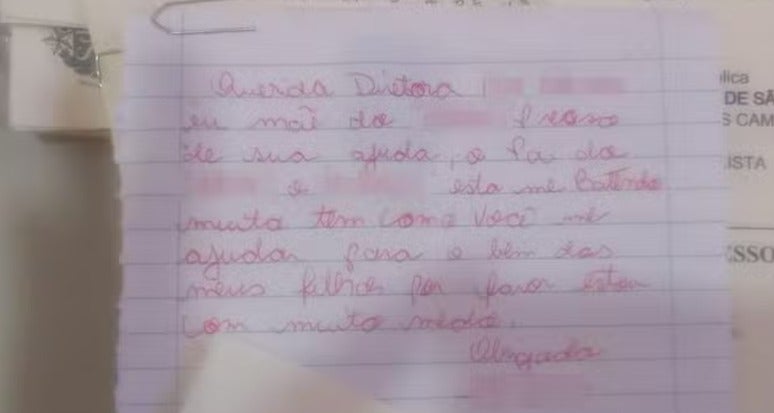 Querida Diretora
eu mãe do Preciso
de sua ajuda, o Pai do
e esta me Batendo
muito tem como você me
ajudar para o bem dos
meus filhos por favor estou
com muito medo.
Obrigada
lica
DE SÃ
S CAM
ISTA
ESSO